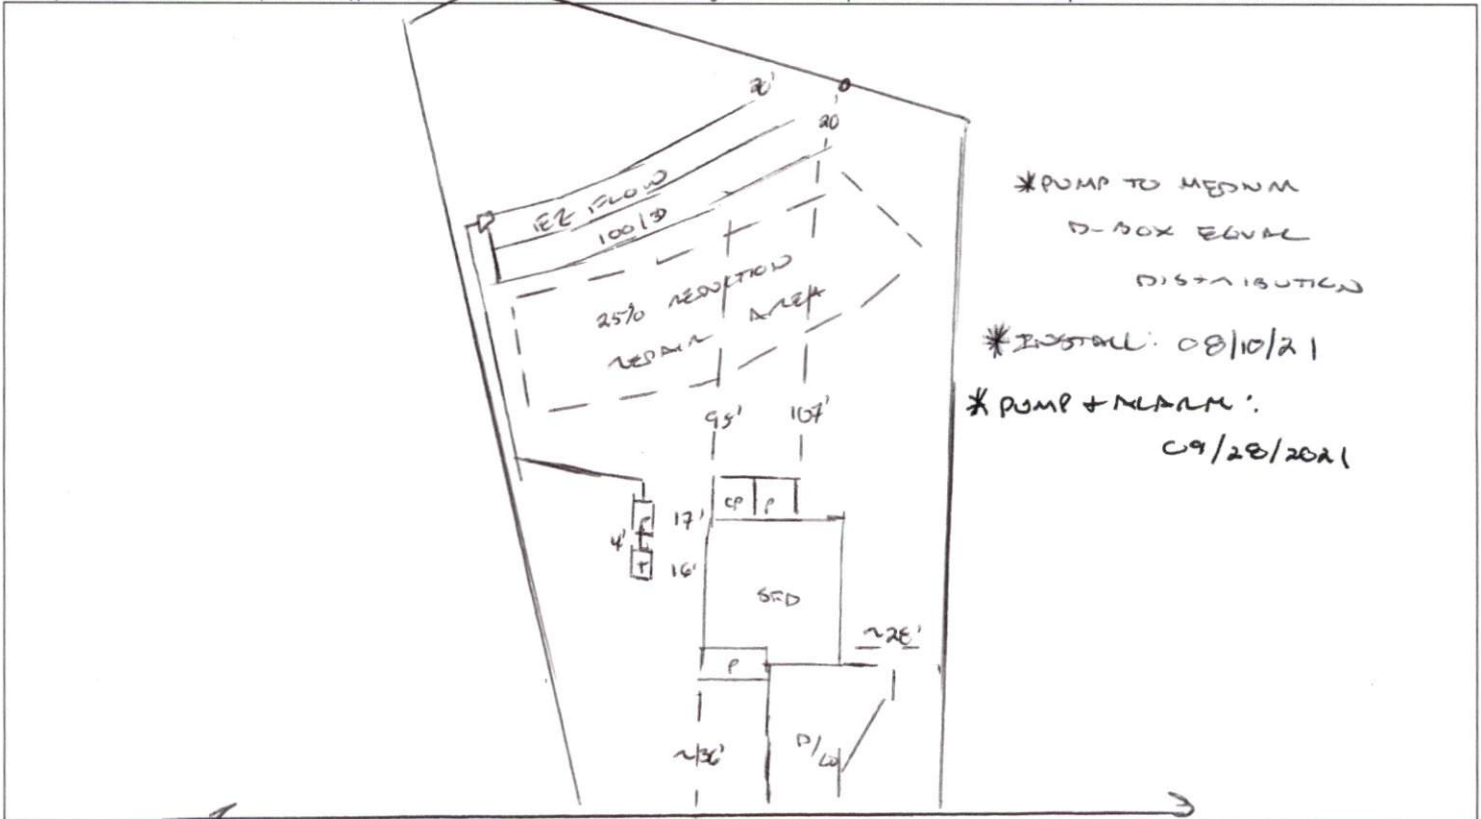 20'
20
EZ FLOW
100/3
25% REDUCTION
REPAIR AREA
95'
107'
CP
P
17'
4'
T
16'
SFD
~28'
P
~36'
D/W
*PUMP TO MEDIUM
D-BOX EQUAL
DISTRIBUTION
*INSTALL: 08/10/21
*PUMP + ALARM:
09/28/2021